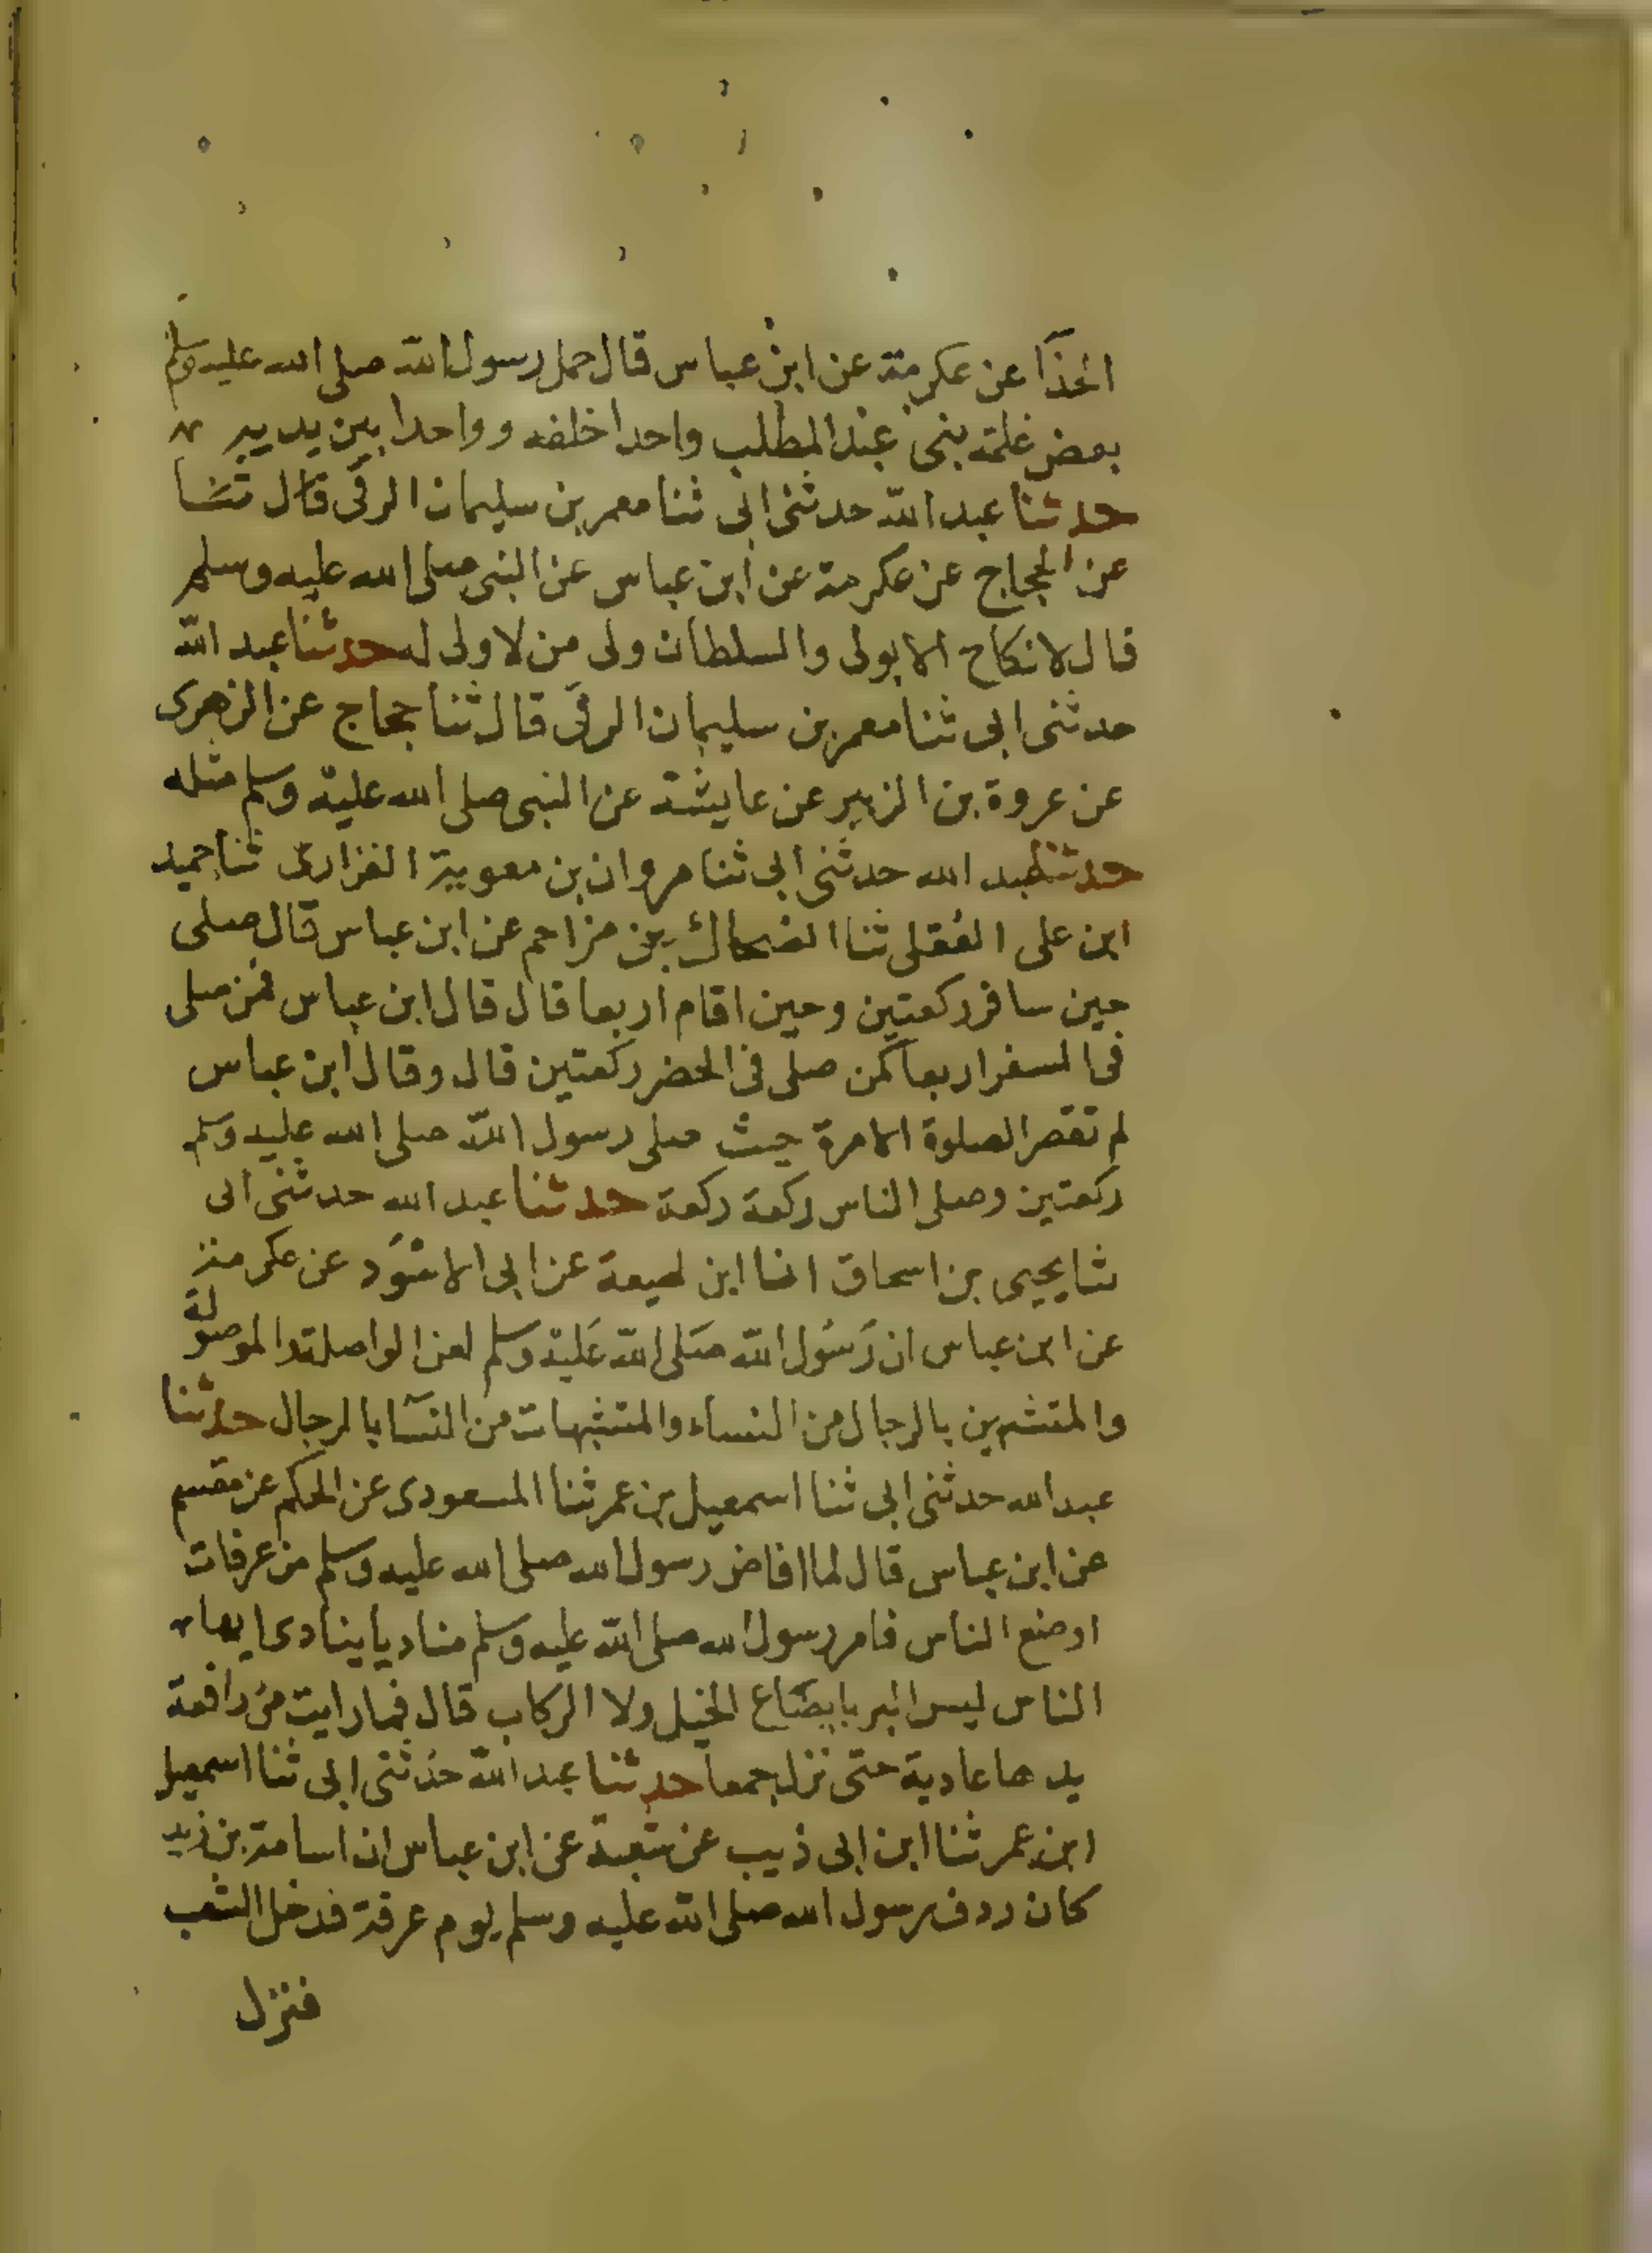 الحذآ عن عكرمة عن ابن عباس قال حمل رسول الله صلى الله عليه وسلم
بعض غلمة بنى عبد المطلب واحدا خلفه وواحدا بين يديه
حدثنا عبد الله حدثنى ابى ثنا معمر بن سليمان الرقى قال ثنا
عن الحجاج عن عكرمة عن ابن عباس عن النبى صلى الله عليه وسلم
قال لا نكاح الا بولى والسلطان ولى من لا ولى له حدثنا عبد الله
حدثنى ابى ثنا معمر بن سليمان الرقى قال ثنا حجاج عن الزهرى
عن عروة بن الزبير عن عايشة عن النبى صلى الله عليه وسلم مثله
حدثنا عبد الله حدثنى ابى ثنا مروان بن معوية الفزارى ثنا حميد
ابن على العقلى ثنا الضحاك بن مزاحم عن ابن عباس قال صلى
حين سافر ركعتين وحين اقام اربعا قال قال ابن عباس فمن صلى
فى السفر اربعا كمن صلى فى الحضر ركعتين قال وقال ابن عباس
لم تقصر الصلوة الا مرة حيث صلى رسول الله صلى الله عليه وسلم
ركعتين وصلى الناس ركعة ركعة حدثنا عبد الله حدثنى ابى
ثنا يحيى بن اسحاق انا ابن لهيعة عن ابى الاسود عن عكرمة
عن ابن عباس ان رَسُول الله صَلى الله عَليه وسلم لعن الواصلة والموصولة
والمتشبهين بالرجال من النساء والمتشبهات من النسآ بالرجال حدثنا
عبد الله حدثنى ابى ثنا اسمعيل بن عمر ثنا المسعودى عن الحكم عن مقسم
عن ابن عباس قال لما افاض رسول الله صلى الله عليه وسلم من عرفات
اوضع الناس فامر رسول الله صلى الله عليه وسلم مناديا ينادى ايها
الناس ليس البر بايضاع الخيل ولا الركاب قال فما رايت من رافعة
يدها عادية حتى نزل جمعا حدثنا عبد الله حدثنى ابى ثنا اسمعيل
ابن عمر ثنا ابن ابى ذيب عن شعبة عن ابن عباس ان اسامة بن زيد
كان ردف رسول الله صلى الله عليه وسلم يوم عرفة فدخل الشعب
فنزل